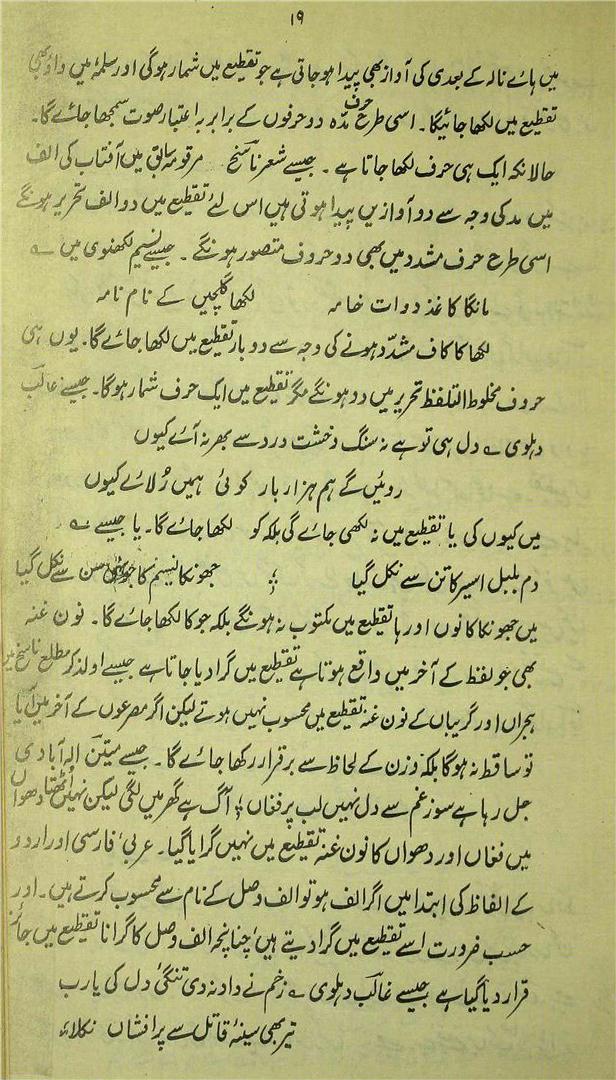 ۱۹
میں ہائے نالہ کے بعدی کی آواز بھی پیدا ہوجاتی ہے جو تقطیع میں شمار ہوگی اور سلمۂ میں واؤ بھی
تقطیع میں لکھا جائیگا۔ اسی طرح حرف مدّہ دو حرفوں کے برابر بہ اعتبار صوت سمجھا جائے گا۔
حالانکہ ایک ہی حرف لکھا جاتا ہے۔ جیسے شعر ناسخ مرقومہ سابق میں آفتاب کی الف
میں مد کی وجہ سے دو آوازیں پیدا ہوتی ہیں اس لئے تقطیع میں دو الف تحریر ہونگے
اسی طرح حرف مشدد میں بھی دو حروف متصور ہونگے۔ جیسے نسیم لکھنوی میں ؎
مانگا کاغذ دوات خامہ لکھا گلچیں کے نام نامہ
لکھا کا کاف مشدّد ہونے کی وجہ سے دو بار تقطیع میں لکھا جائے گا۔ یوں ہی
حروف مخلوط التلفظ تحریر میں دو ہونگے مگر تقطیع میں ایک حرف شمار ہوگا۔ جیسے غالب
دہلوی ؎ دل ہی تو ہے نہ سنگ و خشت درد سے بھر نہ آئے کیوں
روئیں گے ہم ہزار بار کوئی ہمیں رُلائے کیوں
میں کیوں کی یا تقطیع میں نہ لکھی جائے گی بلکہ کو لکھا جائے گا۔ یا جیسے ؎
دم بلبل اسیر کا تن سے نکل گیا ؛ جھونکا نسیم کا جونہی سن سے نکل گیا
میں جھونکا کا نون اور ہا تقطیع میں مکتوب نہ ہونگے بلکہ جوکا لکھا جائے گا۔ نون غنہ
بھی جو لفظ کے آخر میں واقع ہوتا ہے تقطیع میں گرا دیا جاتا ہے جیسے اولذکر مطلع ناسخ میں
ہجراں اور گریباں کے نون غنہ تقطیع میں محسوب نہیں ہوتے لیکن اگر مصرعوں کے آخر میں آیا
تو ساقط نہ ہوگا بلکہ وزن کے لحاظ سے برقرار رکھا جائے گا۔ جیسے متین الہ آبادی
جل رہا ہے سوز غم سے دل نہیں لب پر فغاں ؛ آگ ہے گھر میں لگی لیکن نہیں اٹھتا دھواں
میں فغاں اور دھواں کا نون غنہ تقطیع میں نہیں گرایا گیا۔ عربی، فارسی اور اردو
کے الفاظ کی ابتدا میں اگر الف ہو تو الف وصل کے نام سے محسوب کرتے ہیں۔ اور
حسب ضرورت اسے تقطیع میں گرا دیتے ہیں، چنانچہ الف وصل کا گرانا تقطیع میں جائز
قرار دیا گیا ہے جیسے غالب دہلوی ؎ زخم نے داد نہ دی تنگیٔ دل کی یارب
تیر بھی سینۂ قاتل سے پر افشاں نکلا